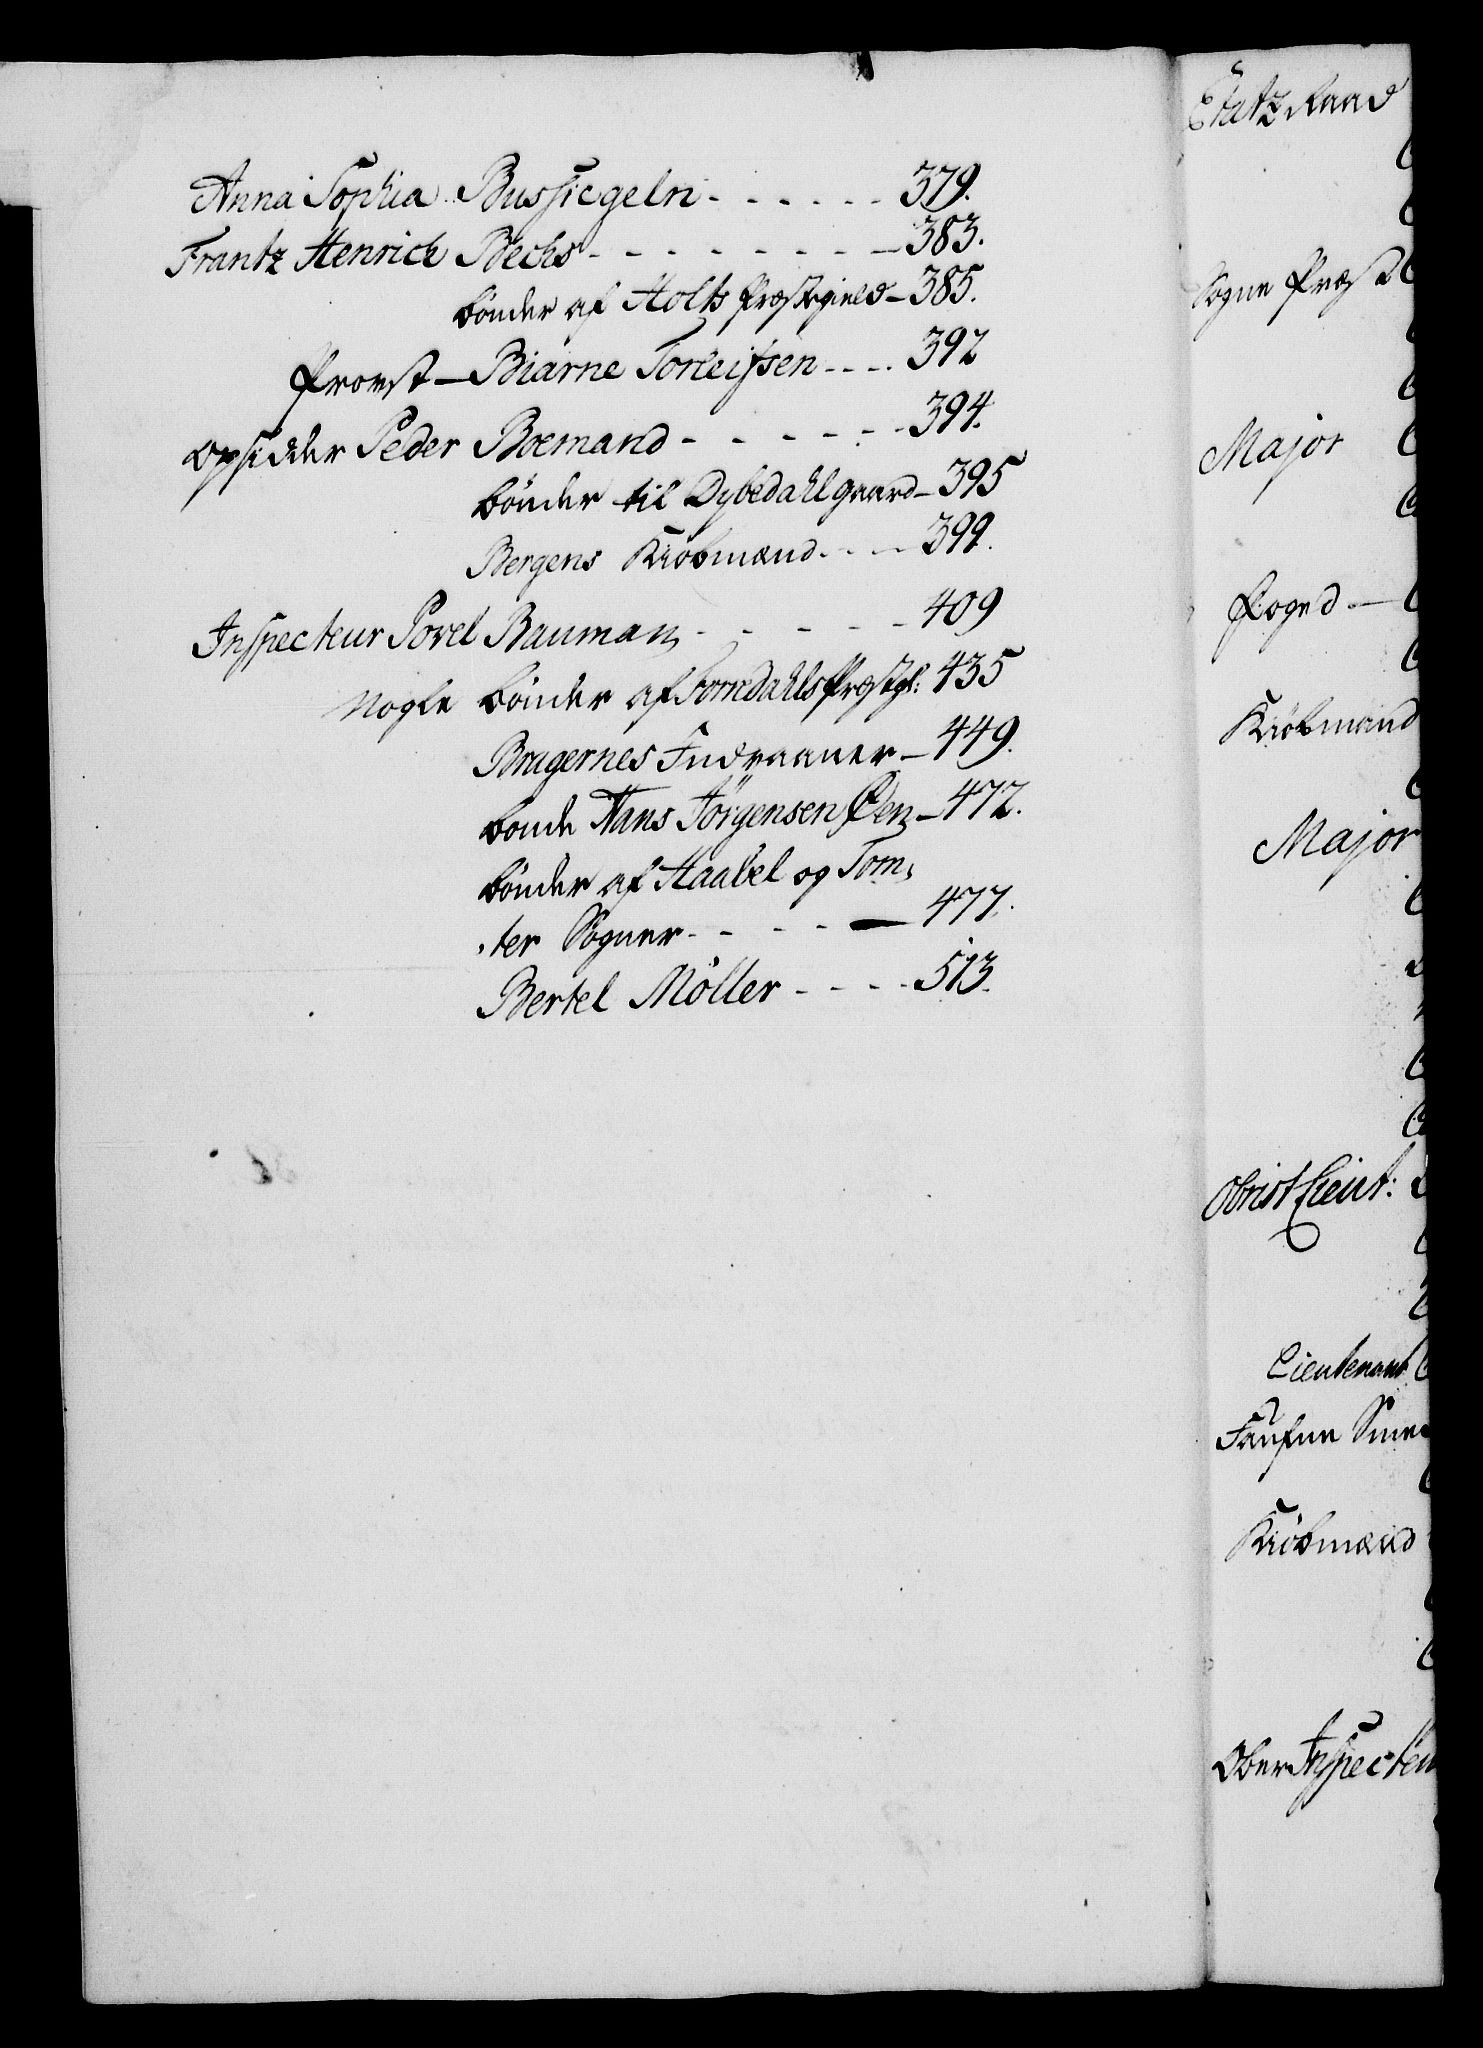 Anna Sophia Bussiegeln - - - - - - 379.
Frantz Henrich Bechs - - - - - - - - 383.
bönder af Holts Præstegield - 385.
Provst - Biarne Torleifsen - - - . 392
Opsidder Peder Boemand - - - - - - - 394.
bönder til Dybedahl gaard - 395
Bergens Kiöbmænd - - - - 399.
Inspecteur Povel Bauman - - - - - 409
Nogle bönder af Præstgl: 435
Bragernes Indvaaner - 449.
bonde Hans Jörgensen Öen - 472.
bönder af Haabel og Tom,
,ter Sogner - - - - - 477.
Bertel Möller - - - - 513.
Etatz Raad
Sogne Præst
Major
Foged -
Kiöbmand
Major
Obrist Lieut:
Lieutenant
Kiöbmænd
Ober Inspecteu